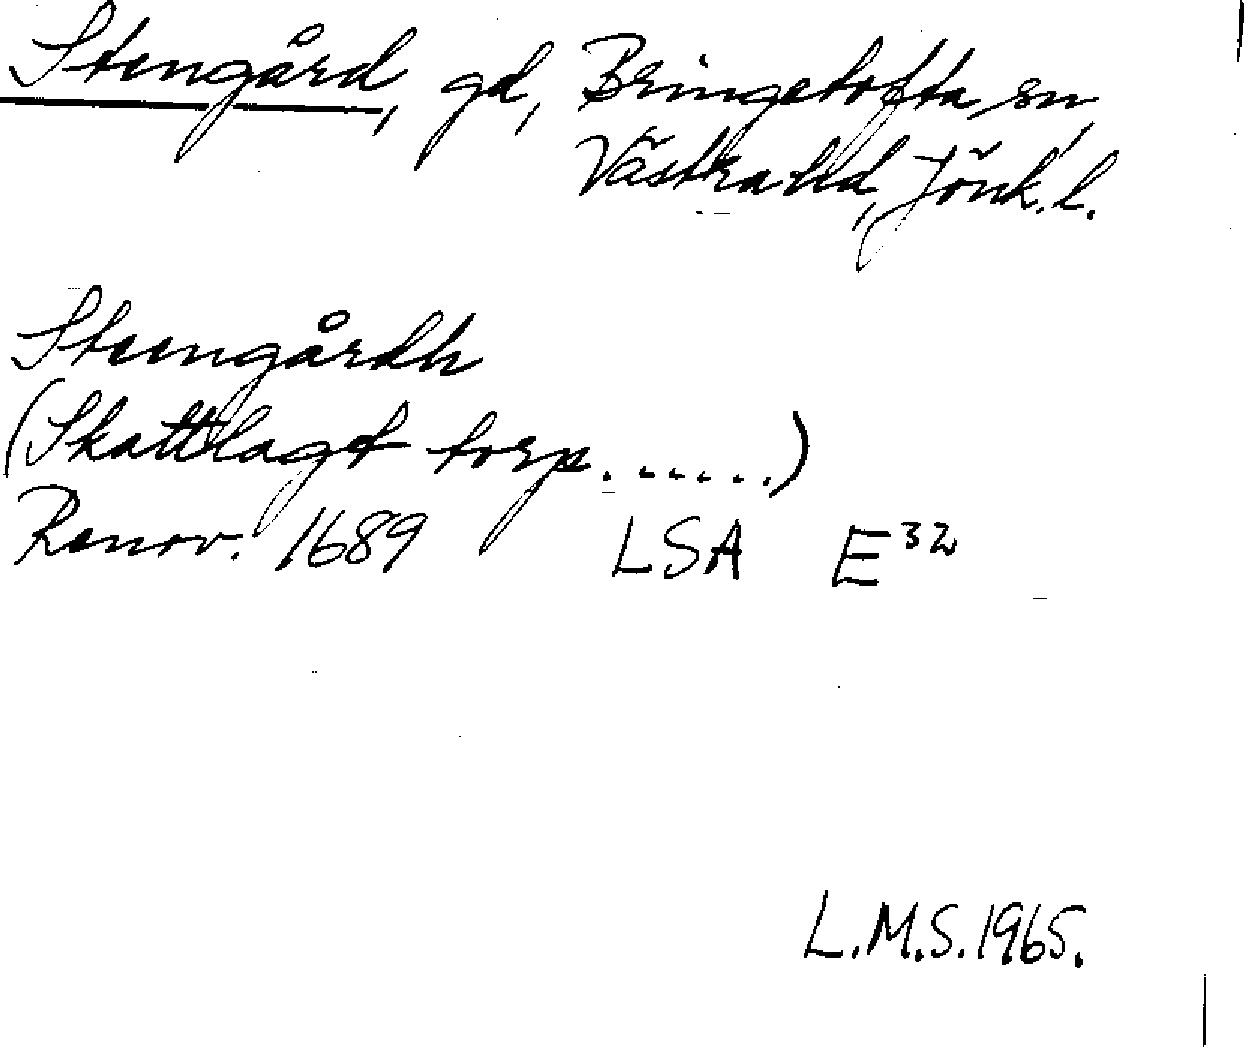 Stengård, gd, Bringetofta sn,
Västra hd, Jönk. l.
Steengårdh
(Skattlagt torp.......)
Renov. 1689 LSA E³²
L.M.S. 1965.